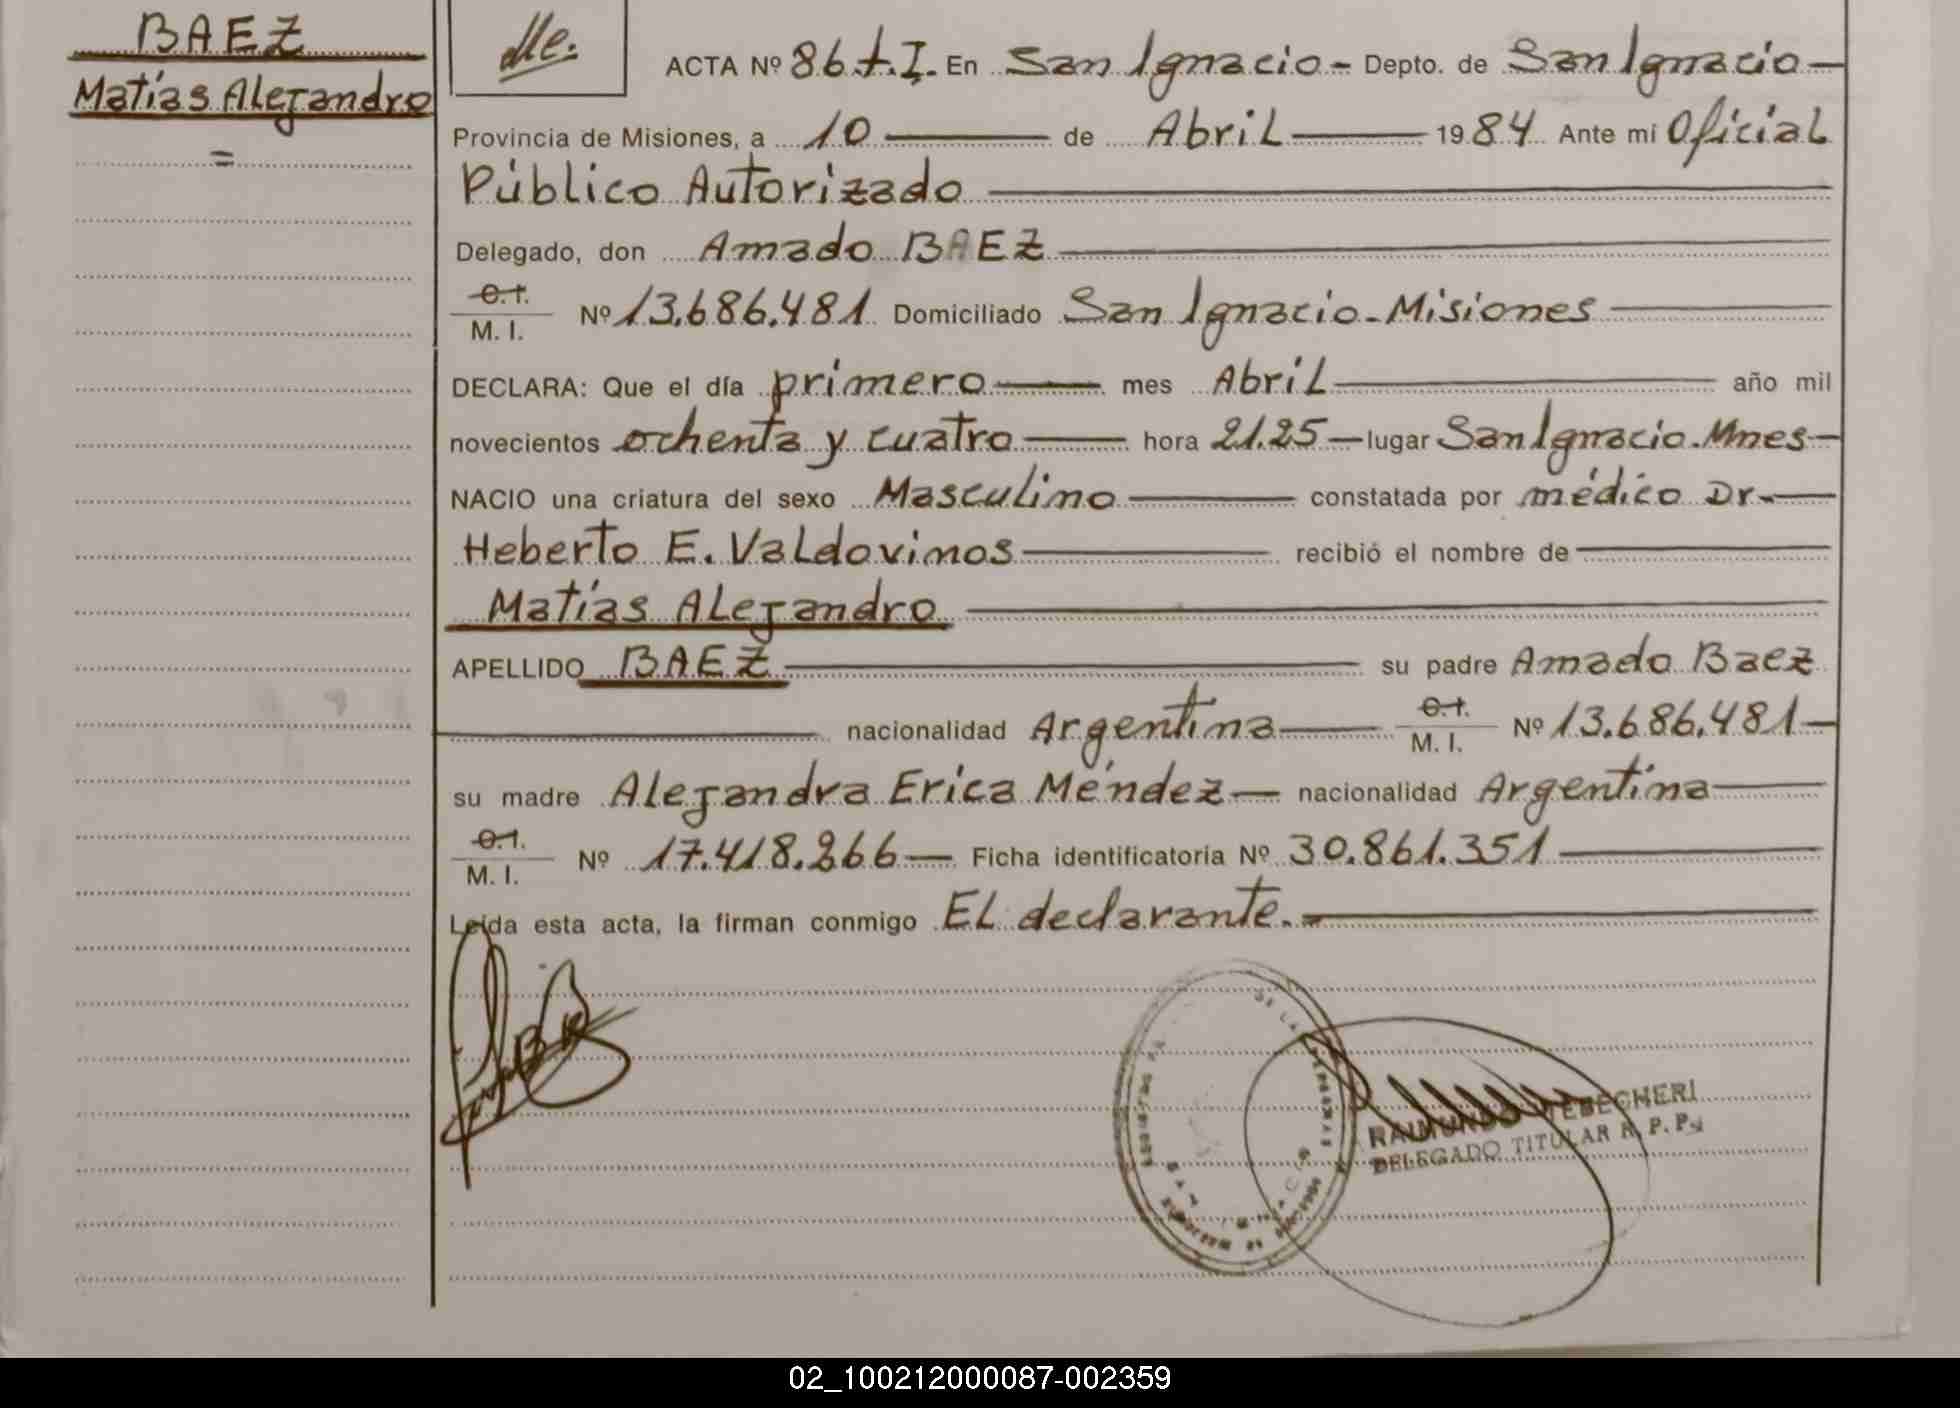 BAEZ
Matías Alejandro
=
ACTA Nº 86.t.I. En San Ignacio - Depto. de San Ignacio -
Provincia de Misiones, a 10 de Abril 1984 Ante mí Oficial
Público Autorizado
Delegado, don Amado BAEZ
C.I.
M. I. Nº 13.686.481 Domiciliado San Ignacio - Misiones
DECLARA: Que el día primero mes Abril año mil
novecientos ochenta y cuatro hora 21.25 - lugar San Ignacio. Mnes -
NACIO una criatura del sexo Masculino constatada por médico Dr.
Heberto E. Valdovinos recibió el nombre de
Matías Alejandro
APELLIDO BAEZ su padre Amado Baez
nacionalidad Argentina C.I.
M. I. Nº 13.686.481 -
su madre Alejandra Erica Méndez - nacionalidad Argentina
C.I.
M. I. Nº 17.418.266 - Ficha identificatoria Nº 30.861.351
Leída esta acta, la firman conmigo El declarante. -
RAIMUNDO
DELEGADO TITULAR R. P. P.
02_100212000087-002359